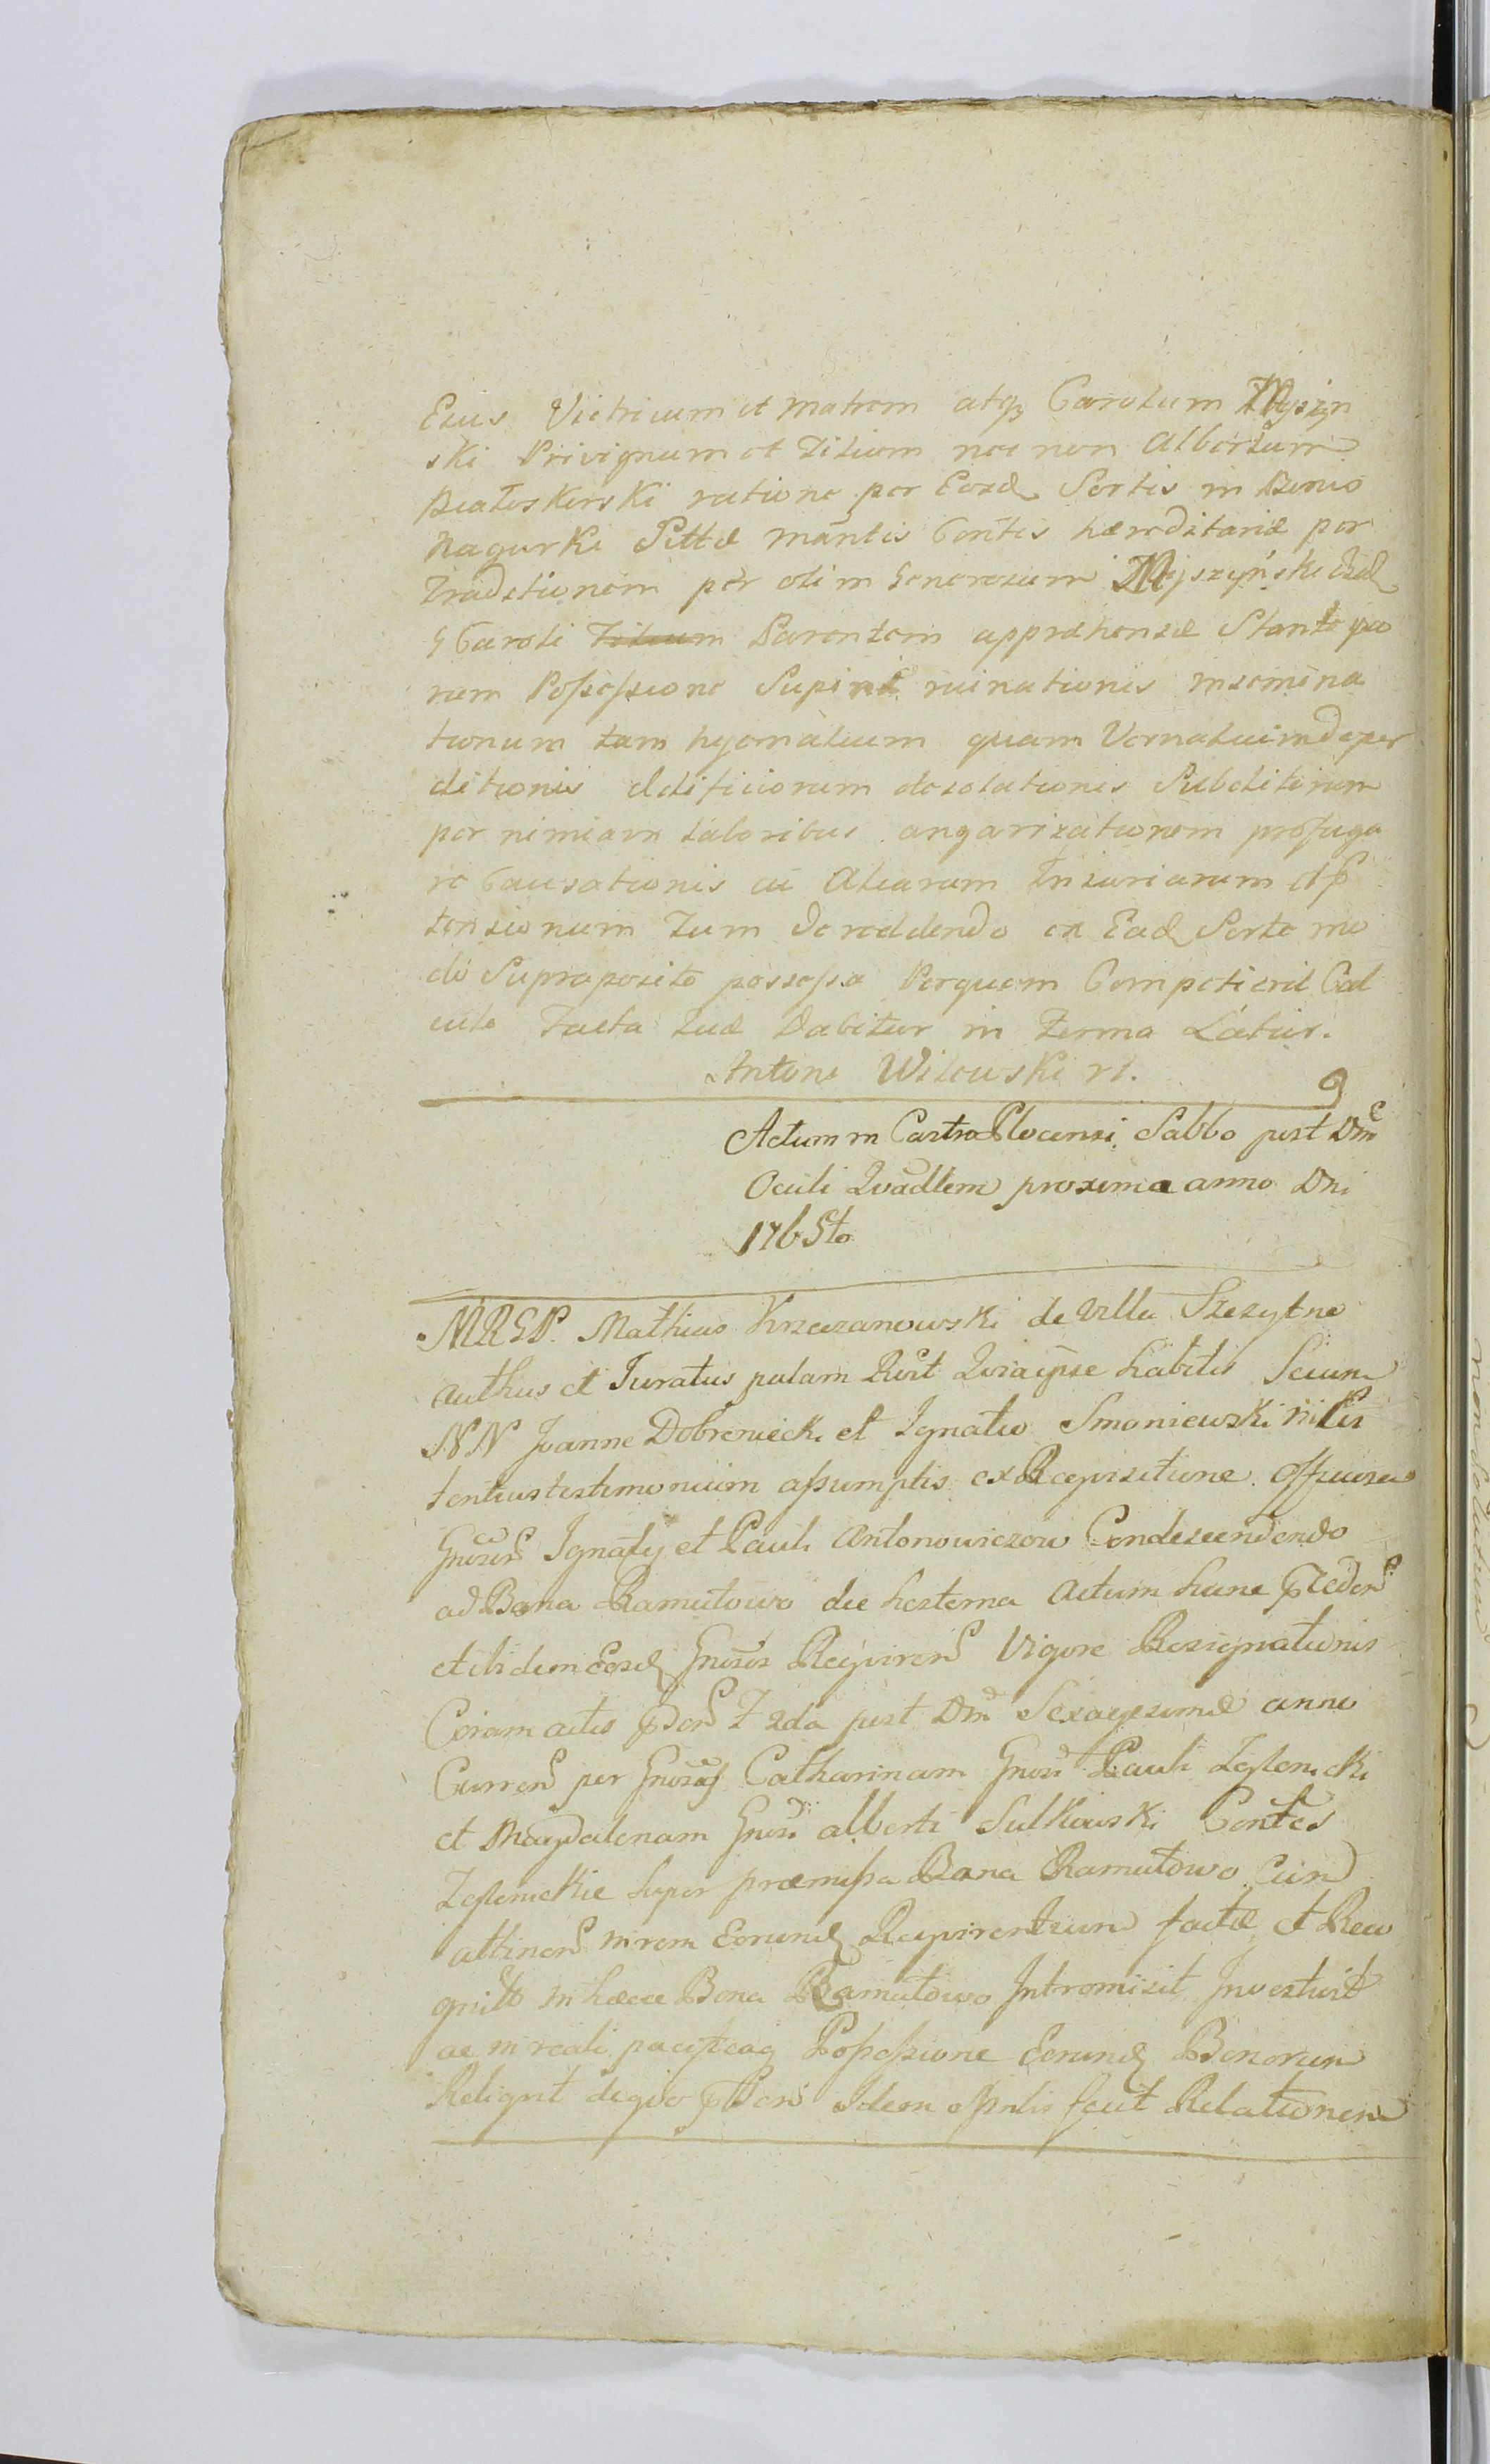 Eius Victricum et Matrem atq3 Carolum Myszyn
ski Privignum et Filium nec non Albertum
Białoskorski ratione per Eosd Sortis in Bonis
Nagurki Pttæ Mantis Contis hæreditariæ per
Traditionem per olim Generosum Myszyński
G Caroli Filium Parentem appræhensæ Stante
rum Possessione Supinæ ruinationis insemina
tionum tam hyemalium quam Vernalium deper
ditionis Ædificiorum desolationis Subditorum
per nimiam laboribus angarizationem profuga
re Causationis cu Aliarum Iniuriarum et p
tensionum Tum De reddendo ex Ead Sorte mo
do Supraposito possessa Perquem Competierit Cal
culo Facta quæ Dabitur in Termo Latius.
Antoni Wilcuski
9
Actum in Castro Plocensi Sabbo post Dm
Oculi Quadlem proxima anno Dni
1765to
MRGP. Mathias Krzczanowski de Villa Szczytno
authus et Juratus palam Rcit Quia ipse habitis Secum
NN Joanne Dobrenieck. et Ignatio Smoniewski
tentius testimonium assumptis ex Requisitione Officiosa
Gnosor Ignatij et Pauli Antonowiczow Condescendendo
ad Bona Ramutowo die hesterna Actum hunc
et ibidem Eosd Gnosos Requiren Vigore Resignationis
Coram actis pden F 2da post Dm Sexagesimæ anno
Curren per Gnosas Catharinam Gnosi Pauli
et Magdalenam Gnosi alberti Sulkowski Contes
super præmissa Bona Ramutowo Cum
attinen in rem Eorund Requirentium factæ et Reco
gnitæ in hæcce Bona Ramutowo Intromisit Investivit
ac in reali pacificaq Possessione Eorund Bonorum
Reliqnt de quo pden Idem Mnlis fecit Relationem